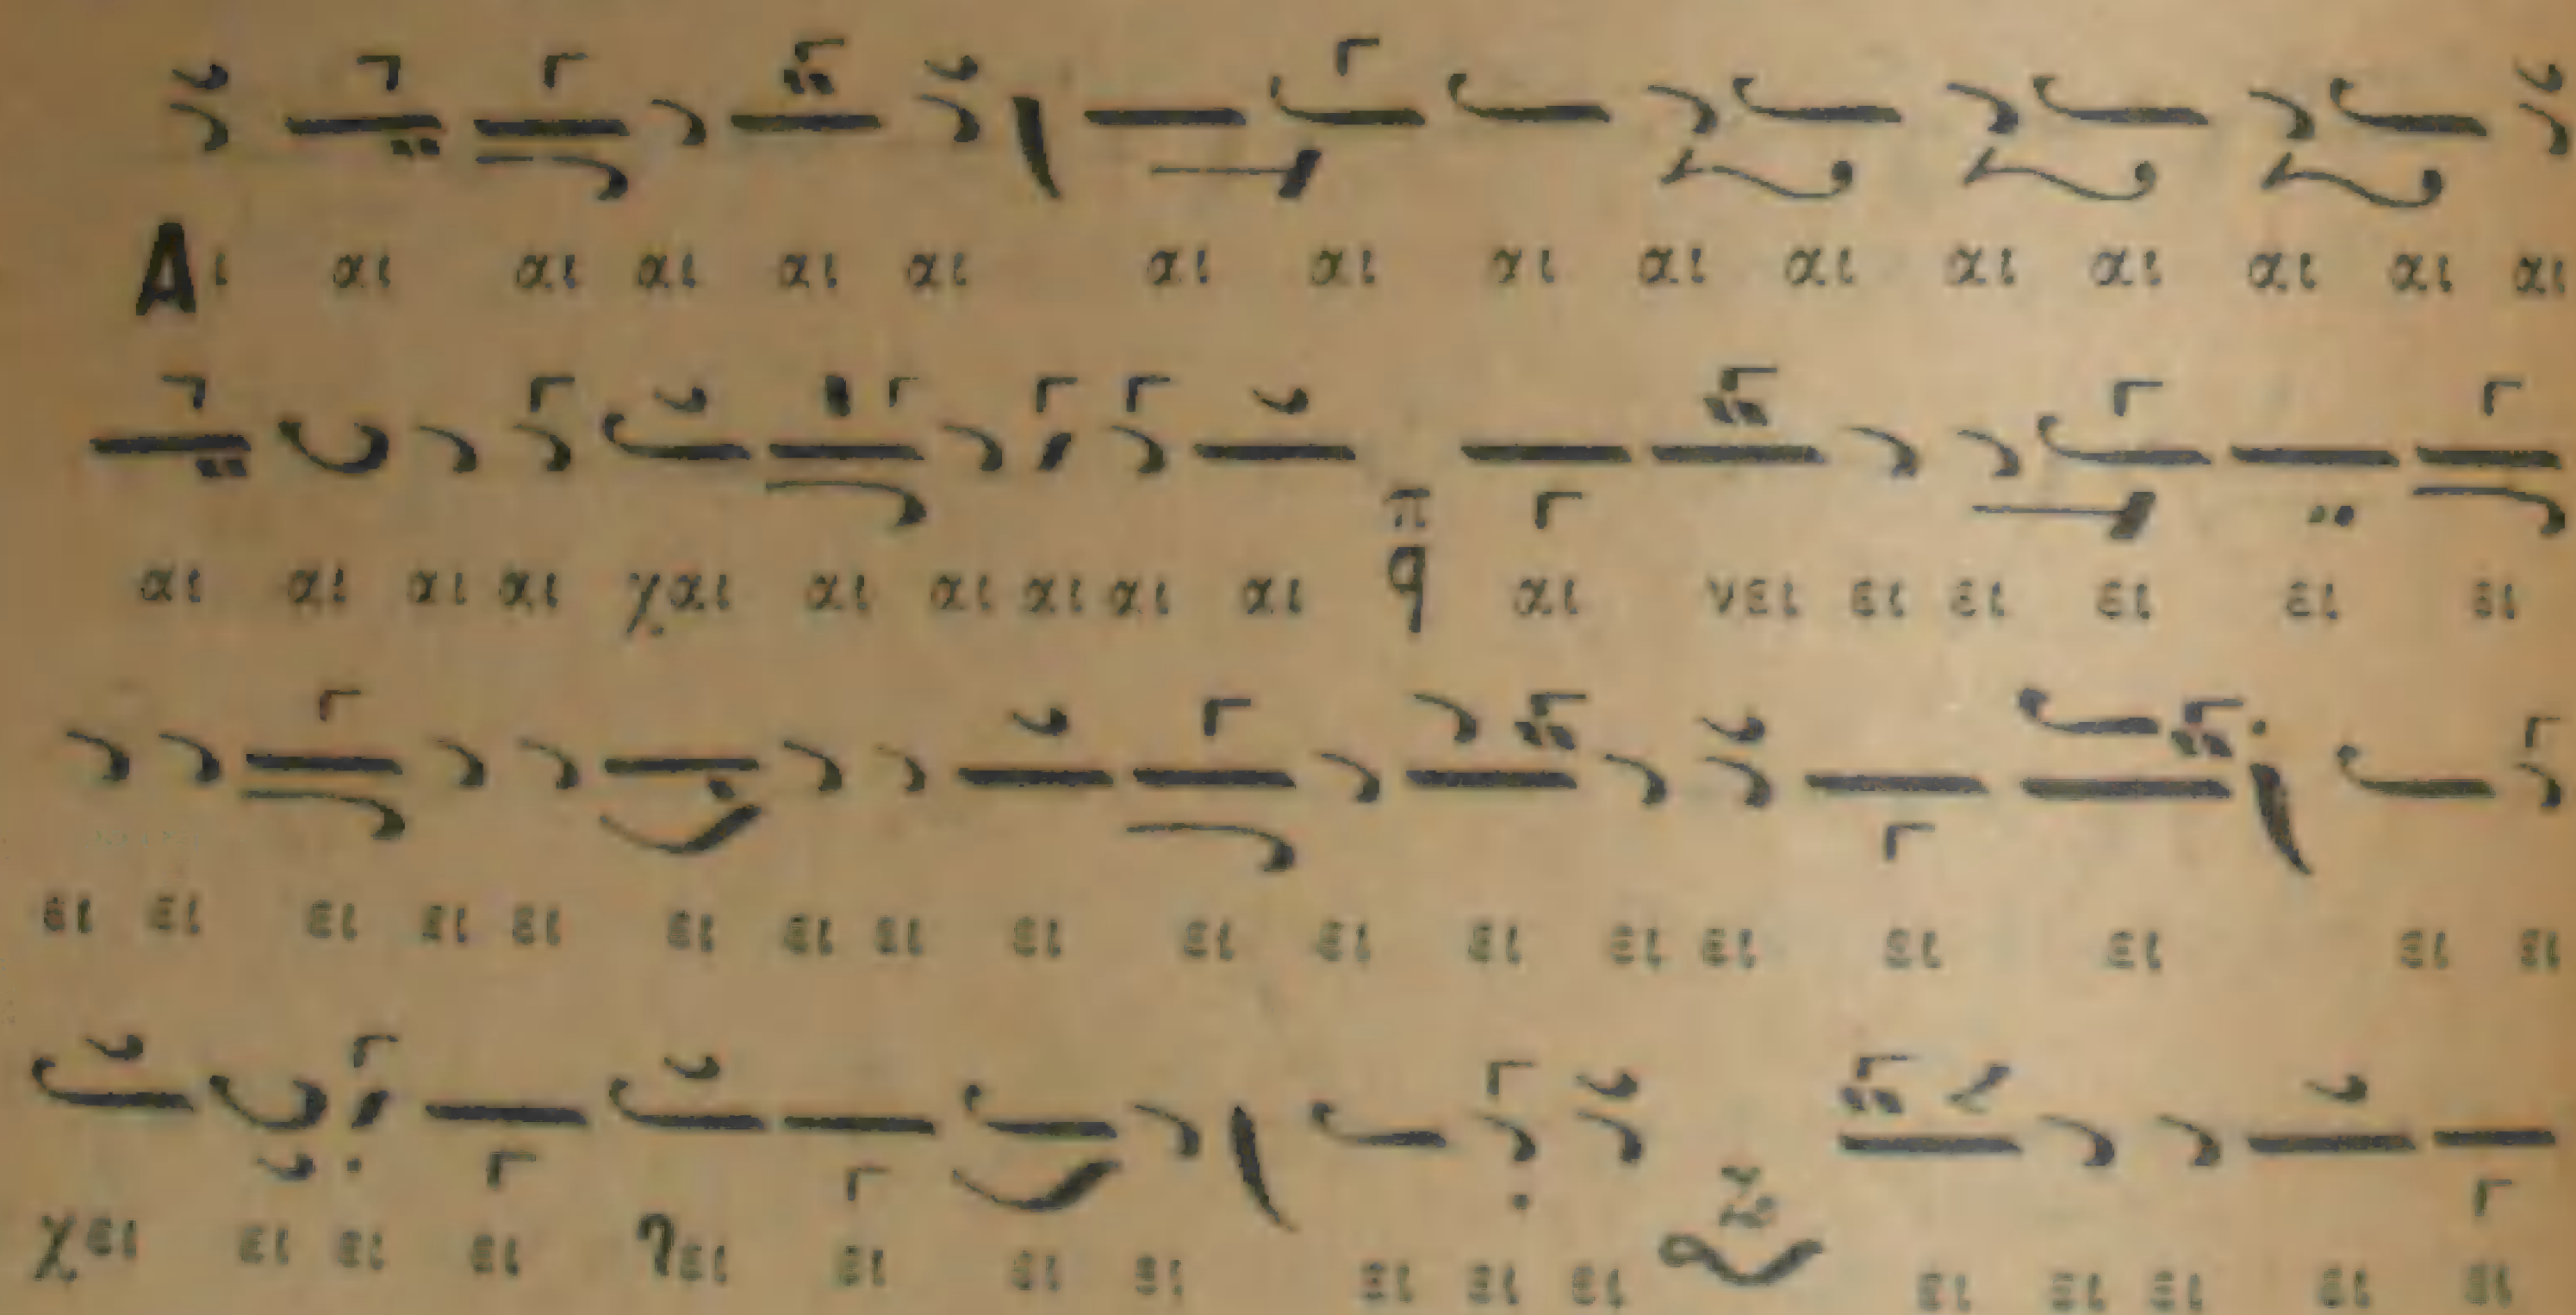 Αι αι αι αι αι αι αι αι αι αι αι αι αι αι αι αι
αι αι αι αι χαι αι αι αι αι αι π q αι νει ει ει ει ει ει
ει ει ει ει ει ει ει ει ει ει ει ει ει ει ει ει ει ει
χει ει ει ει ει ει ει ει ει ει ει ει ει ει ει ει